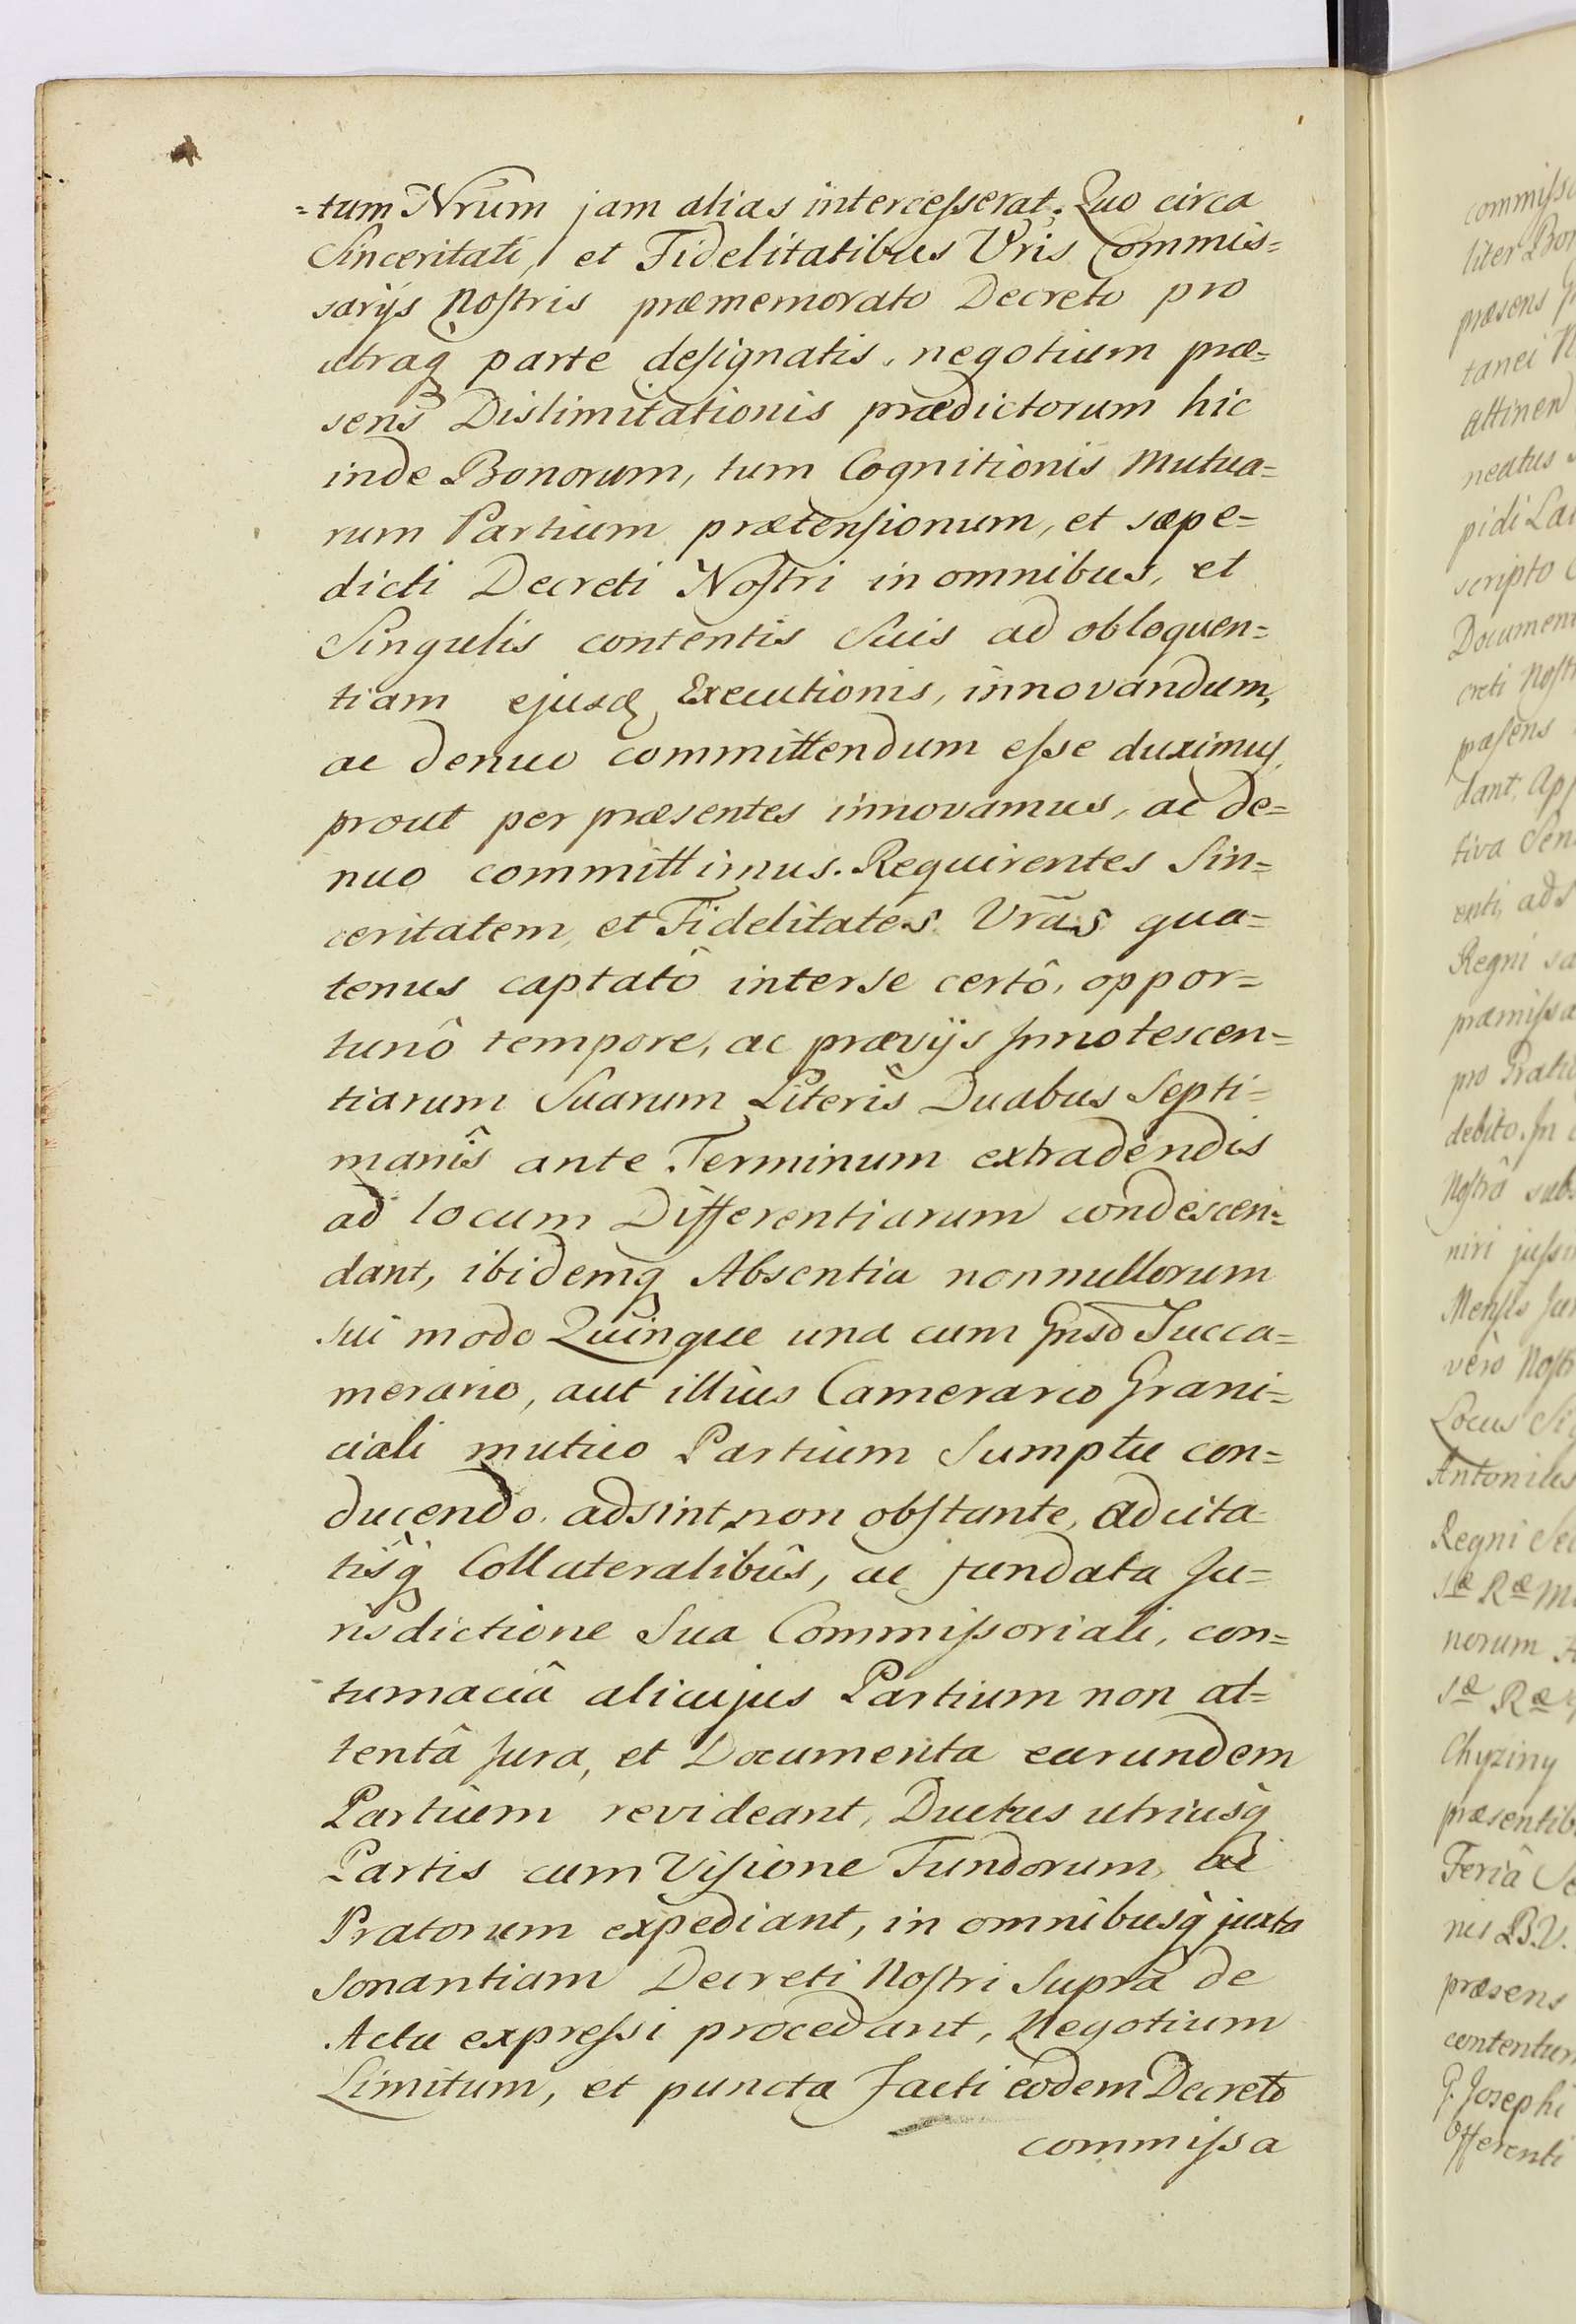 =tum Nrũm jam alias intercesserat. Quo circa
Sinceritati, et Fidelitatibus Vris Commis=
sarÿs Nostris præmemorato Decreto pro
utraq parte designatis, negotium præ=
sens Dislimitationis prædictorum hic
inde Bonorum, tum Cognitionis Mutua=
rum Partium prætensionum, et sæpe=
dicti Decreti Nostri in omnibus, et
Singulis contentis Suis ad obloquen=
tiam ejusq Executionis, innovandum,
ac denuo committendum esse duximus,
prout per præsentes innovamus, ac de=
nuo committimus. Requirentes Sin=
ceritatem, et Fidelitates Vrãs qua=
tenus captatô inter se certô, oppor=
tunô tempore, ac prævÿs Innotescen=
tiarum Suarum Literis Duabus Septi=
manîs ante Terminum extradendis
ad locum Differentiarum condescen=
dant, ibidemq Absentia nonnullorum
sui modo Quinque una cum Gnsō Succa=
merario, aut illius Camerario Grani=
ciali mutuo Partium Sumptu con=
ducendo, adsint, non obstante, adcita=
tisq Collateralibûs, ac fundata Ju=
risdictione Sua Commissoriali, con=
tumaciâ alicujus Partium non at=
tentâ Jura, et Documenta earundem
Partium revideant, Ductus utriusq
Partis cum Visione Fundorum, ac
Pratorum expediant, in omnibusq juxta
sonantiam Decreti Nostri supra de
Actu expressi procedant, Negotium
Limitum, et puncta facti eodem Decreto
commissa
commissa
liter Bon
præsens
tanei N
attinen
neatus
pidi La
scripto
Documen
creti Nost
præsens
dant, Ap
tiva Sen
enti, ads
Regni sa
præmissa
pro Gratio
debito. In
Nostrâ sub
niri jussi
Mensis Ju
verò Nost
Locus Sig
Antonius
Regni Se
Sæ Ræ M
norum
Sæ Ræ
Chyziny
præsentib
Feriâ Se
nis B.V.
præsens
contentum
G. Josephi
Offerenti